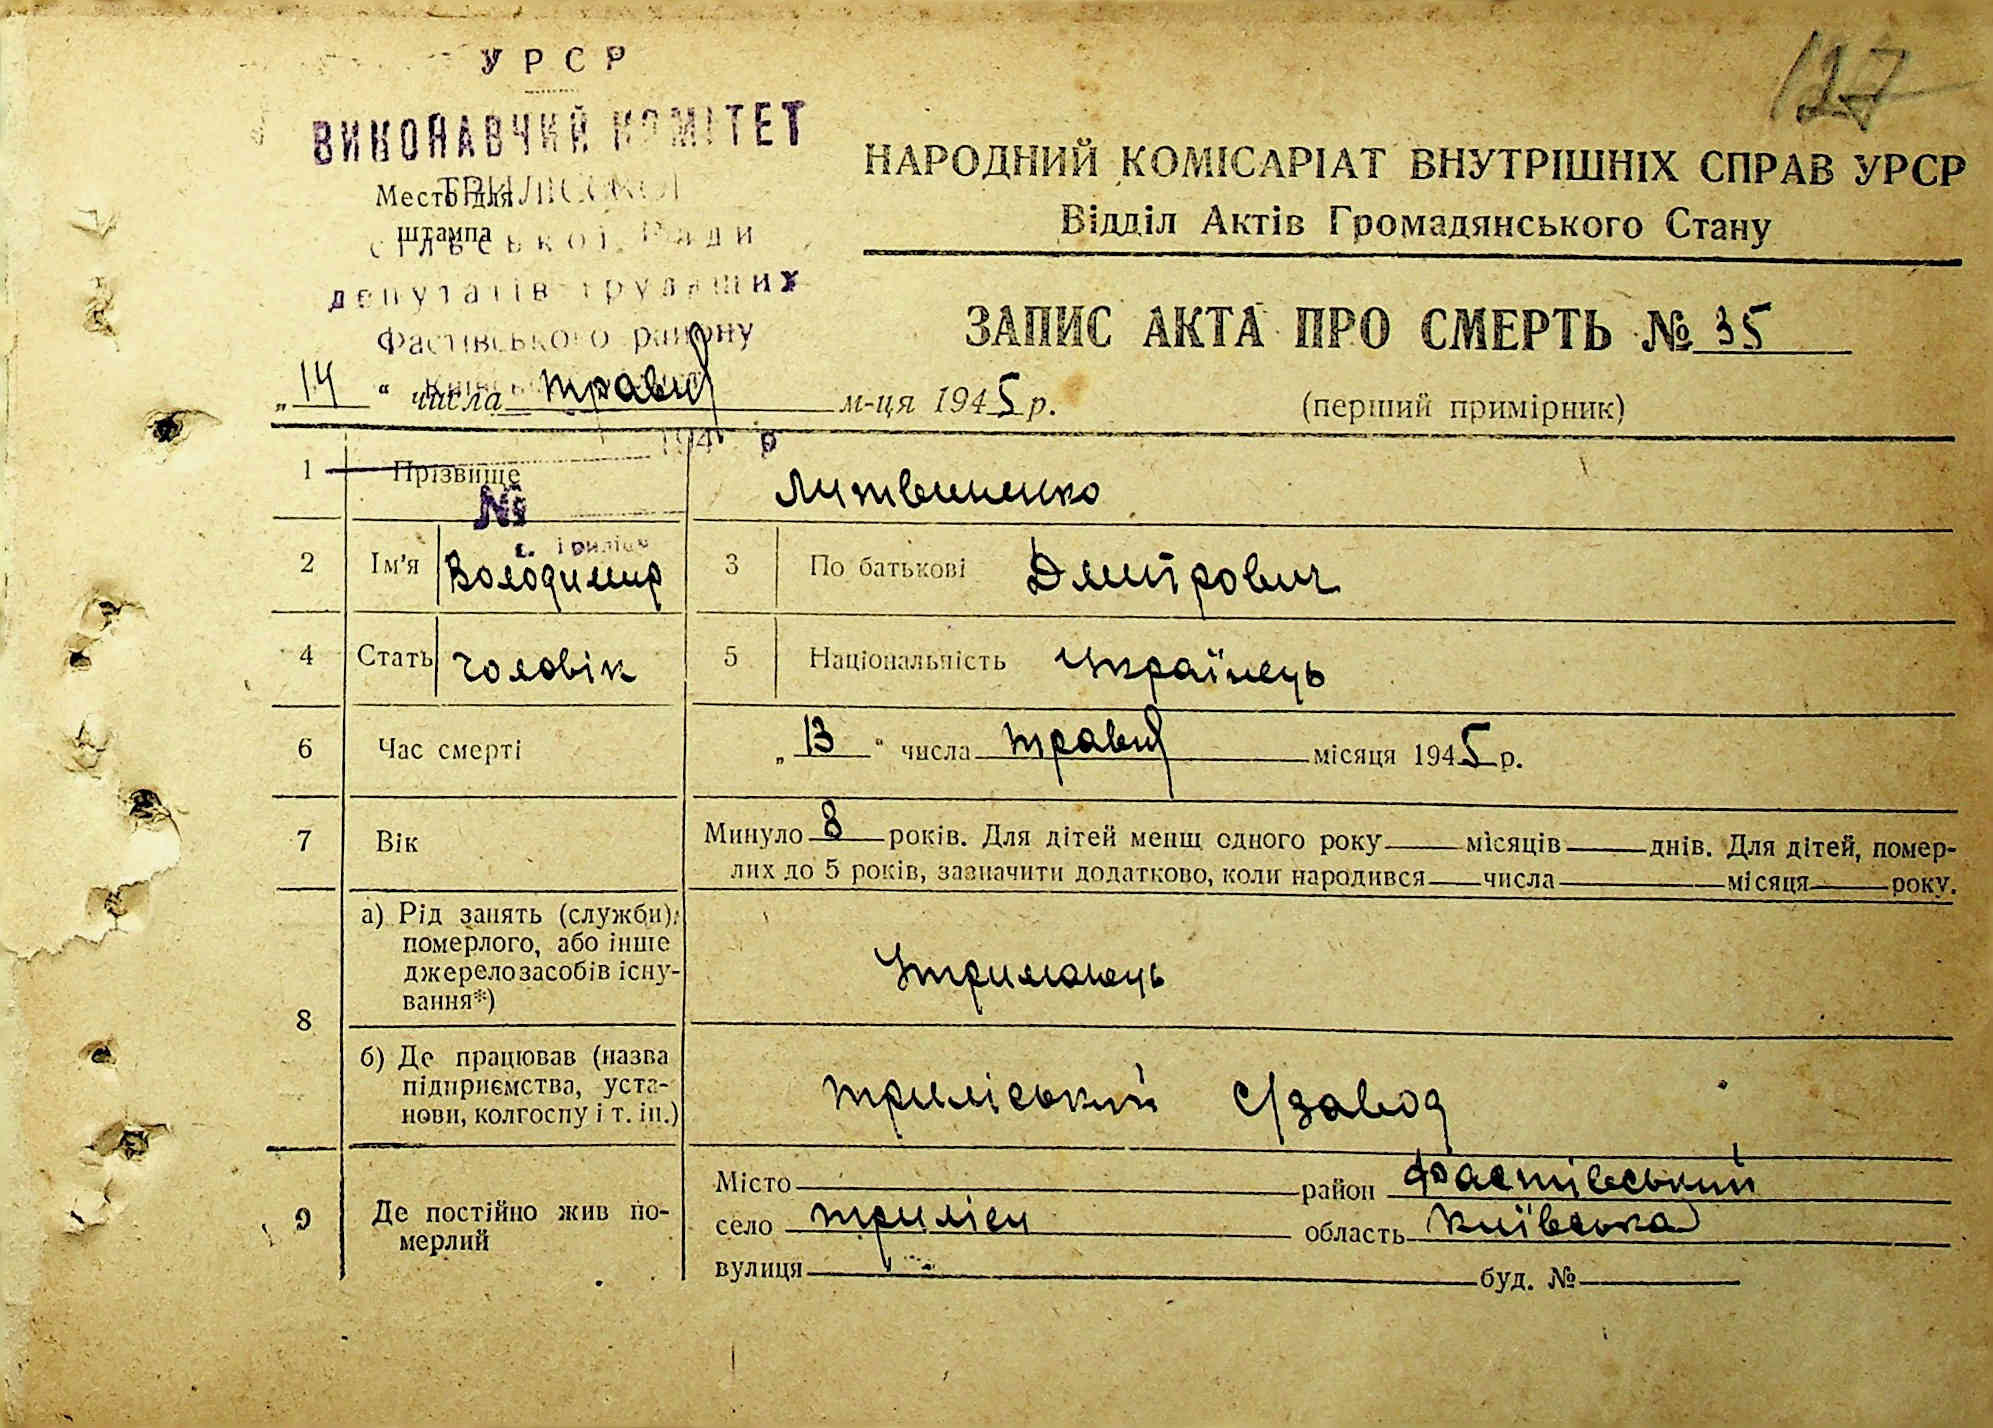 127
УРСР
ВИКОНАВЧИЙ КОМІТЕТ
ТРИЛІСЬКОЇ
Место для
штампа
сільської Ради
депутатів трудящих
Фастівського району
НАРОДНИЙ КОМІСАРІАТ ВНУТРІШНІХ СПРАВ УРСР
Відділ Актів Громадянського Стану
ЗАПИС АКТА ПРО СМЕРТЬ № 35
„14“ числа травня м-ця 1945 р.
(перший примірник)
194 р
1 Прізвище Литвиненко
№
2 Ім'я Володимир 3 По батькові Дмитрович
4 Стать чоловік 5 Національність Українець
6 Час смерті „13“ числа травня місяця 1945 р.
7 Вік Минуло 8 років. Для дітей менш одного року місяців днів. Для дітей, помер-
лих до 5 років, зазначити додатково, коли народився числа місяця року.
8 а) Рід занять (служби)
померлого, або інше
джерело засобів існу-
вання*)
Утриманець
б) Де працював (назва
підприємства, уста-
нови, колгоспу і т. ін.)
Триліський с/завод
9 Де постійно жив по-
мерлий
Місто район Фастівський
село Триліси область Київська
вулиця буд. №